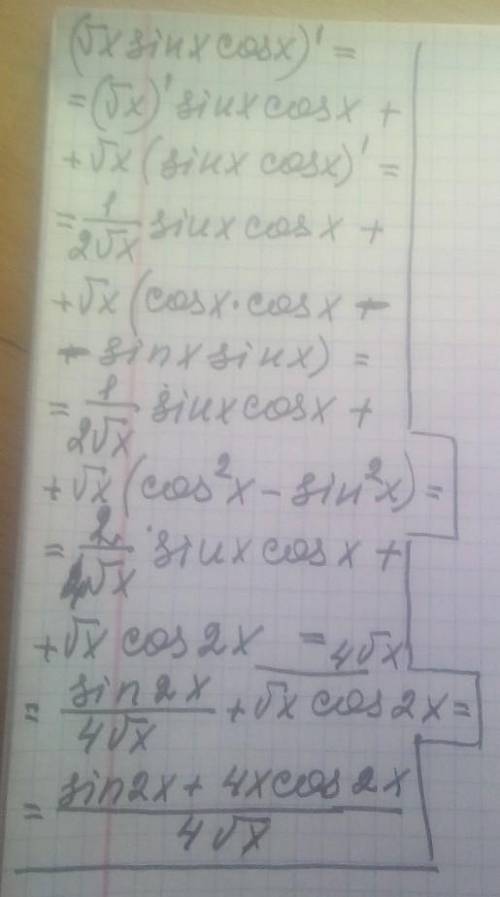 (√x sinx cosx)' =
= (√x)' sinx cosx +
+ √x (sinx cosx)' =
= 1/(2√x) sinx cosx +
+ √x (cosx · cosx -
- sinx sinx) =
= 1/(2√x) sinx cosx +
+ √x (cos²x - sin²x) =
= 2/(4√x) · sinx cosx +
+ √x cos2x = 4√x
= sin2x/(4√x) + √x cos2x =
= (sin2x + 4x cos2x)/(4√x)